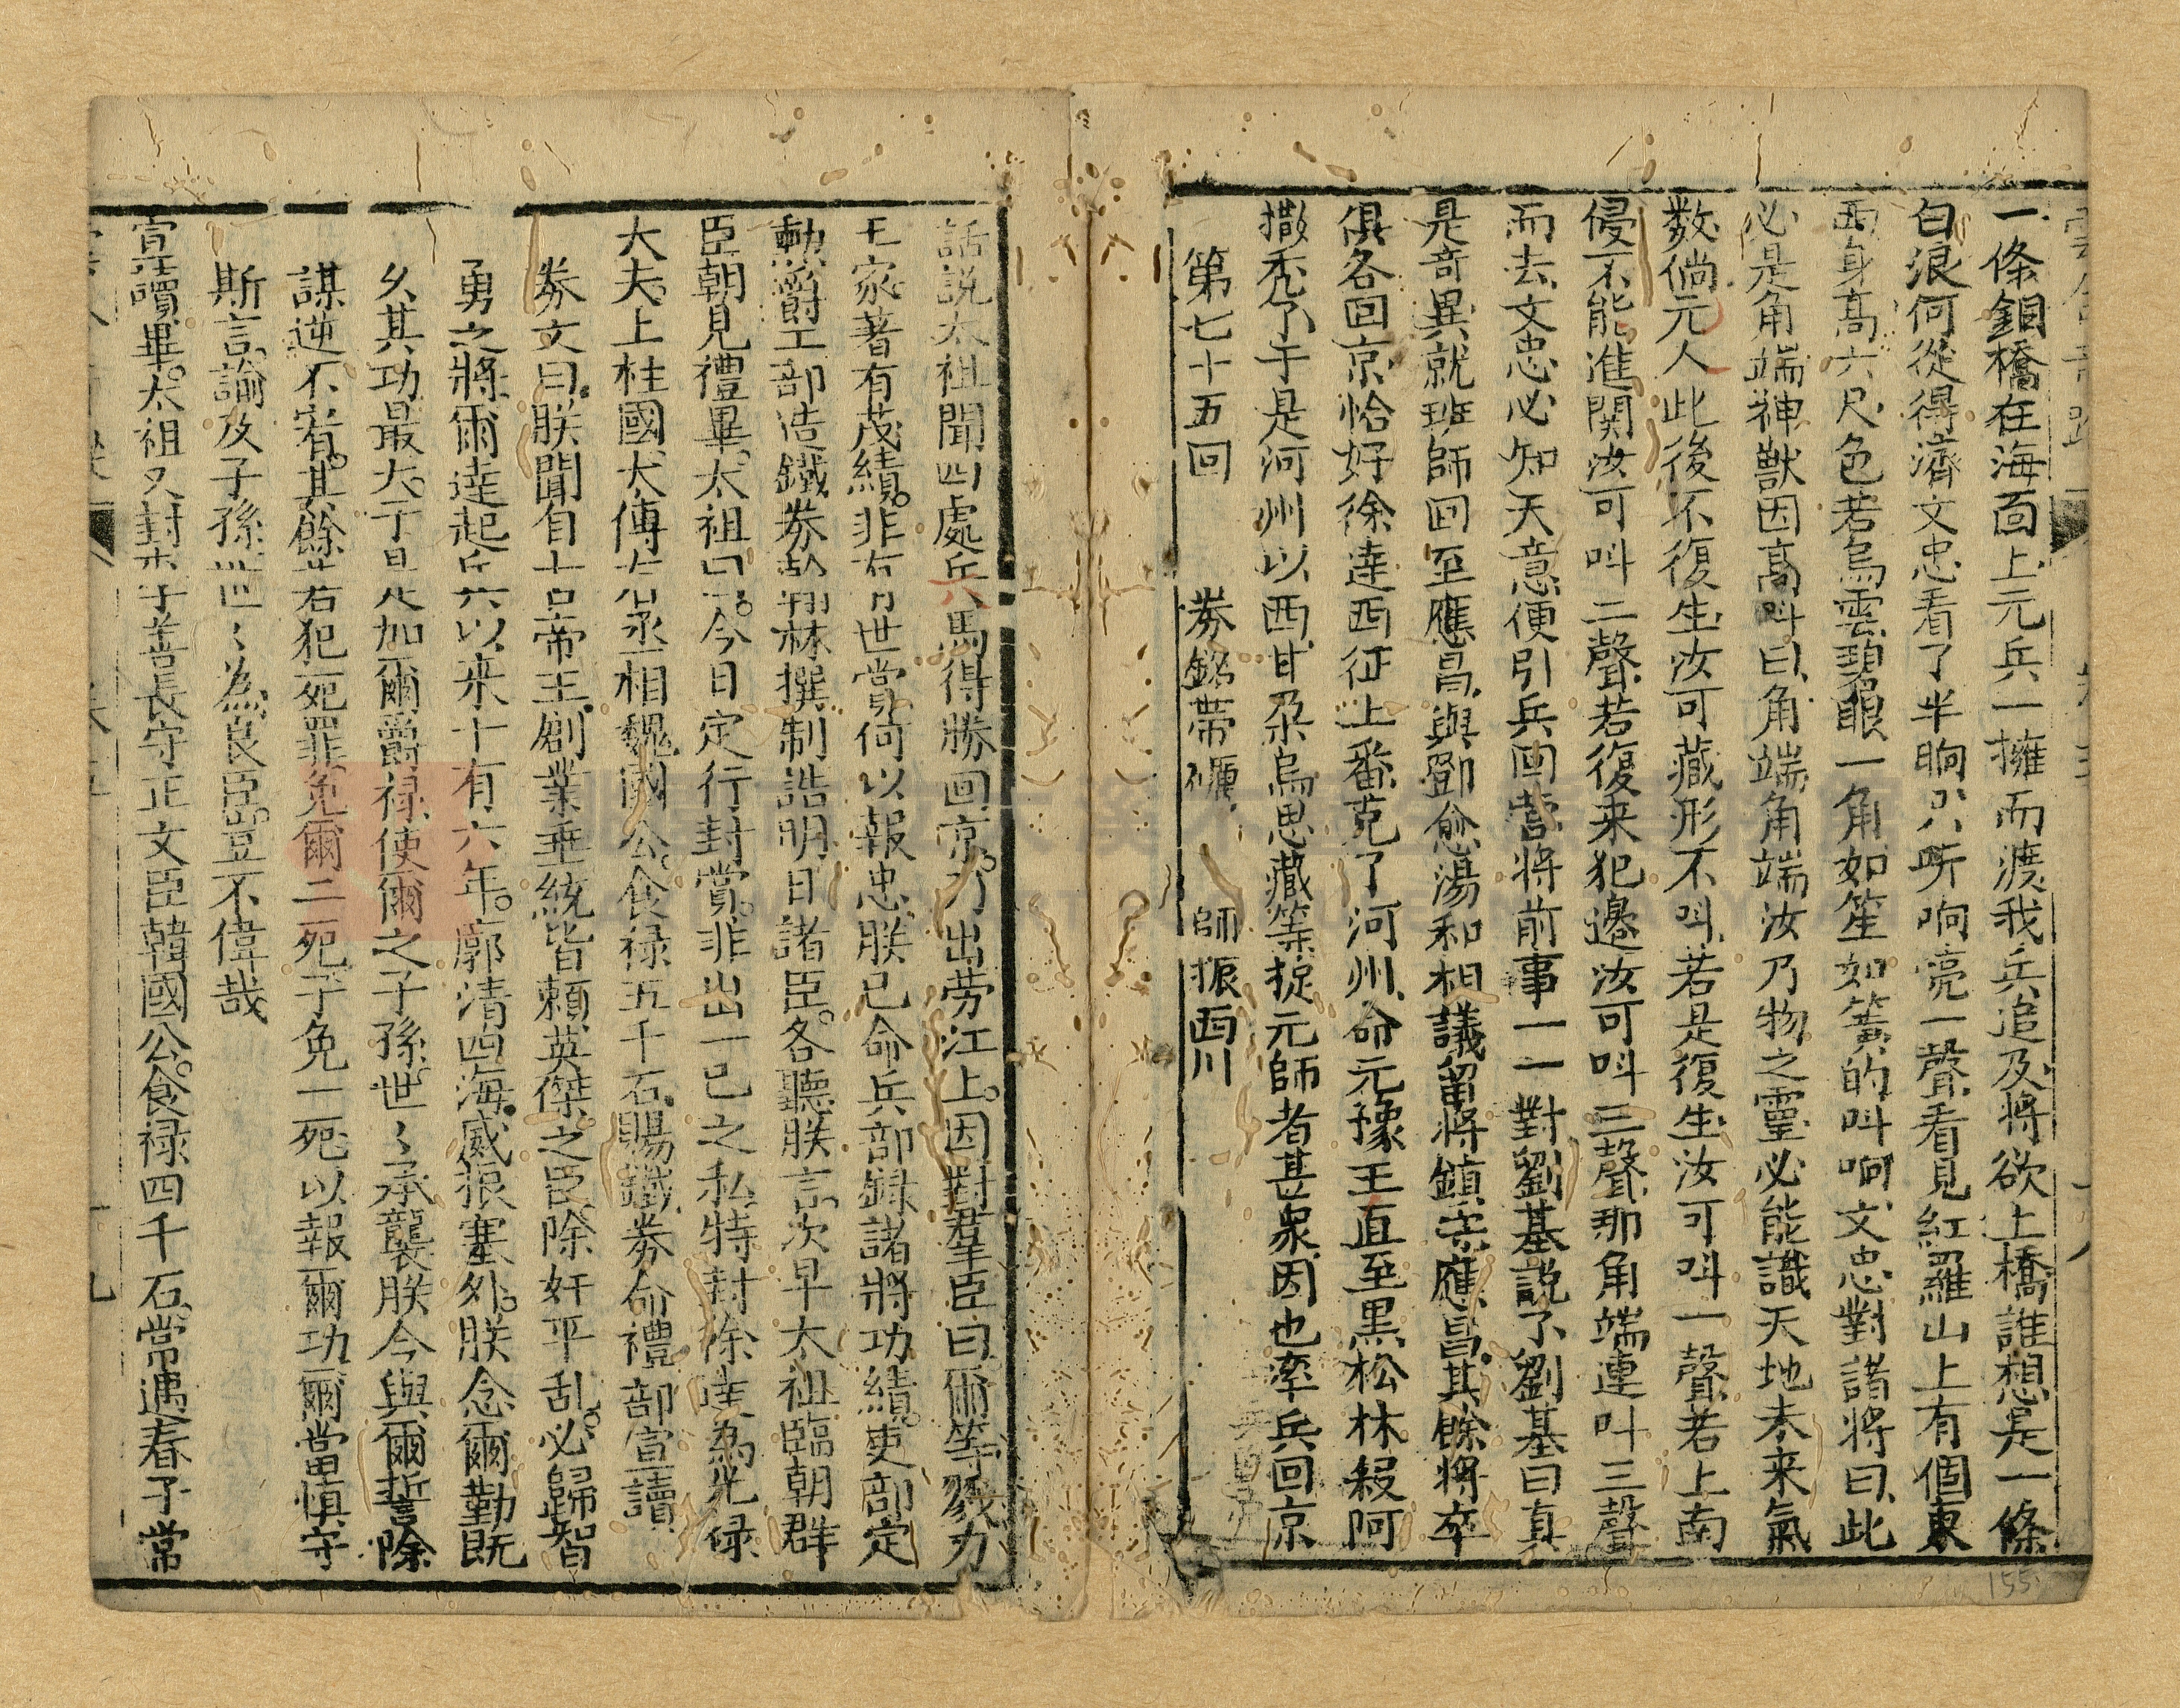 一條銅橋在海面上元兵一擁而渡我兵追及將欲上橋誰想是一條
白浪何從得濟文忠看了半晌只听响亮一聲看見紅羅山上有個東
西身高六尺色若烏雲碧眼一角如笙如簧的叫响文忠對諸將曰此
必是角端神獸因高叫曰角端角端汝乃物之靈必能識天地未来氣
数倘元人此後不復生汝可藏形不叫若是復生汝可叫一聲若上南
侵不能進関汝可叫二聲若復来犯邊汝可叫三聲那角端連叫三聲
而去文忠必知天意便引兵回營將前事一一對劉基說了劉基曰真
是奇異就班師回至應昌與鄧愈湯和相議留將鎮守應昌其餘將卒
俱各回京恰好徐達西征上番克了河州命元豫王直至黑松林殺阿
撒禿了于是河州以西甘朶烏思藏等捉元師者甚衆因也率兵回京
第七十五回 券銘帶礪 師振西川
話說太祖聞四處兵馬得勝回京乃出劳江上因對羣臣曰爾等戮力
王家著有茂績非有世賞何以報忠朕已命兵部錄諸將功績吏部定
勲爵工部造鐵券翰林撰制誥明日諸臣各聽朕言次早太祖臨朝群
臣朝見禮畢太祖曰今日定行封賞非出一己之私特封徐達為光禄
大夫上柱國太傅右丞相魏國公食禄五千石賜鐵券命禮部宣讀
券文曰朕聞自古帝王創業垂統皆賴英傑之臣除奸平乱必歸智
勇之將爾達起兵以来十有六年廓清四海威振塞外朕念爾勤既
久其功最大于是加爾爵禄使爾之子孫世〻承襲朕今與爾誓除
謀逆不宥其餘若犯死罪免爾二死子免一死以報爾功爾當慎守
斯言諭及子孫世〻為良臣豈不偉哉
宣讀畢太祖又封李善長守正文臣韓國公食禄四千石常遇春子常
155